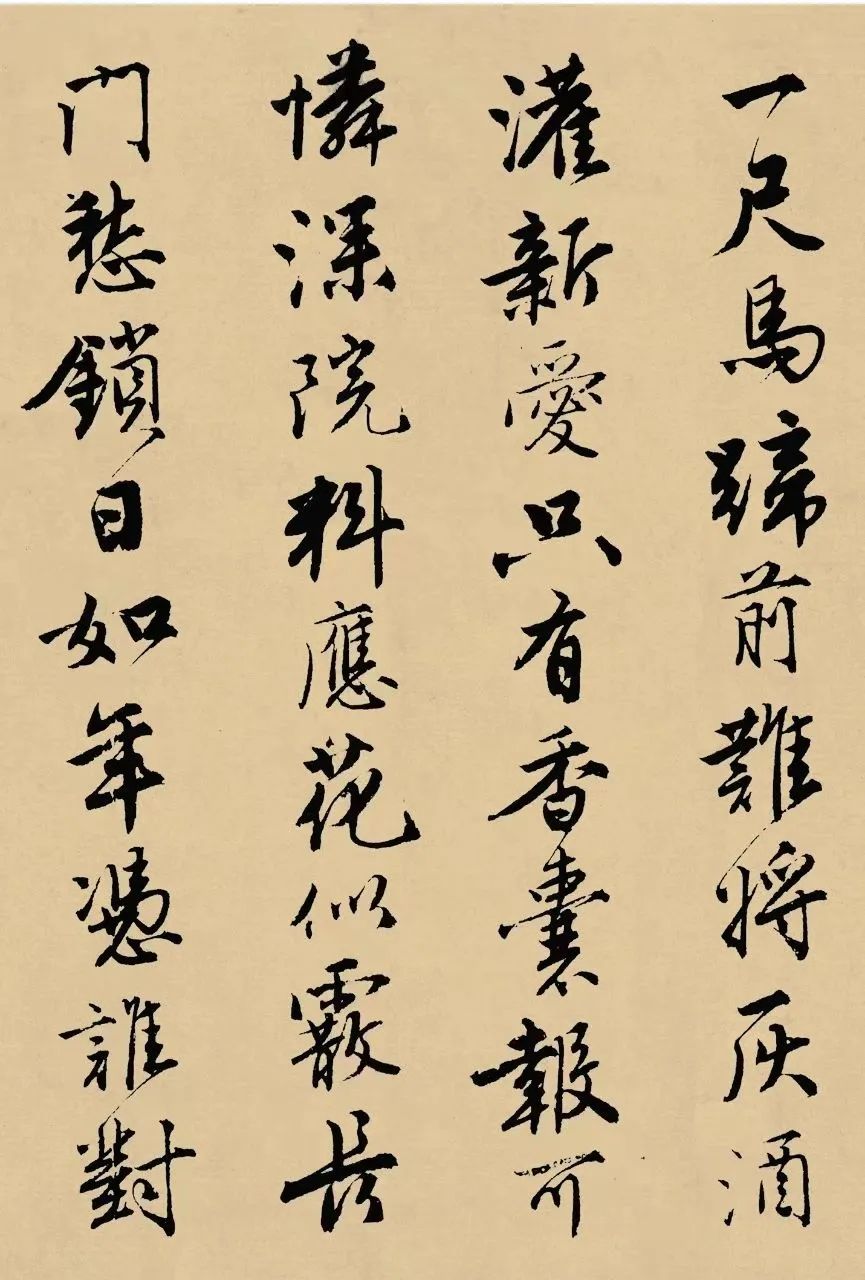 一尺馬蹄前難將灰酒
灌新愛只有香囊報可
憐深院料應花似霰長
門愁鎖日如年憑誰對